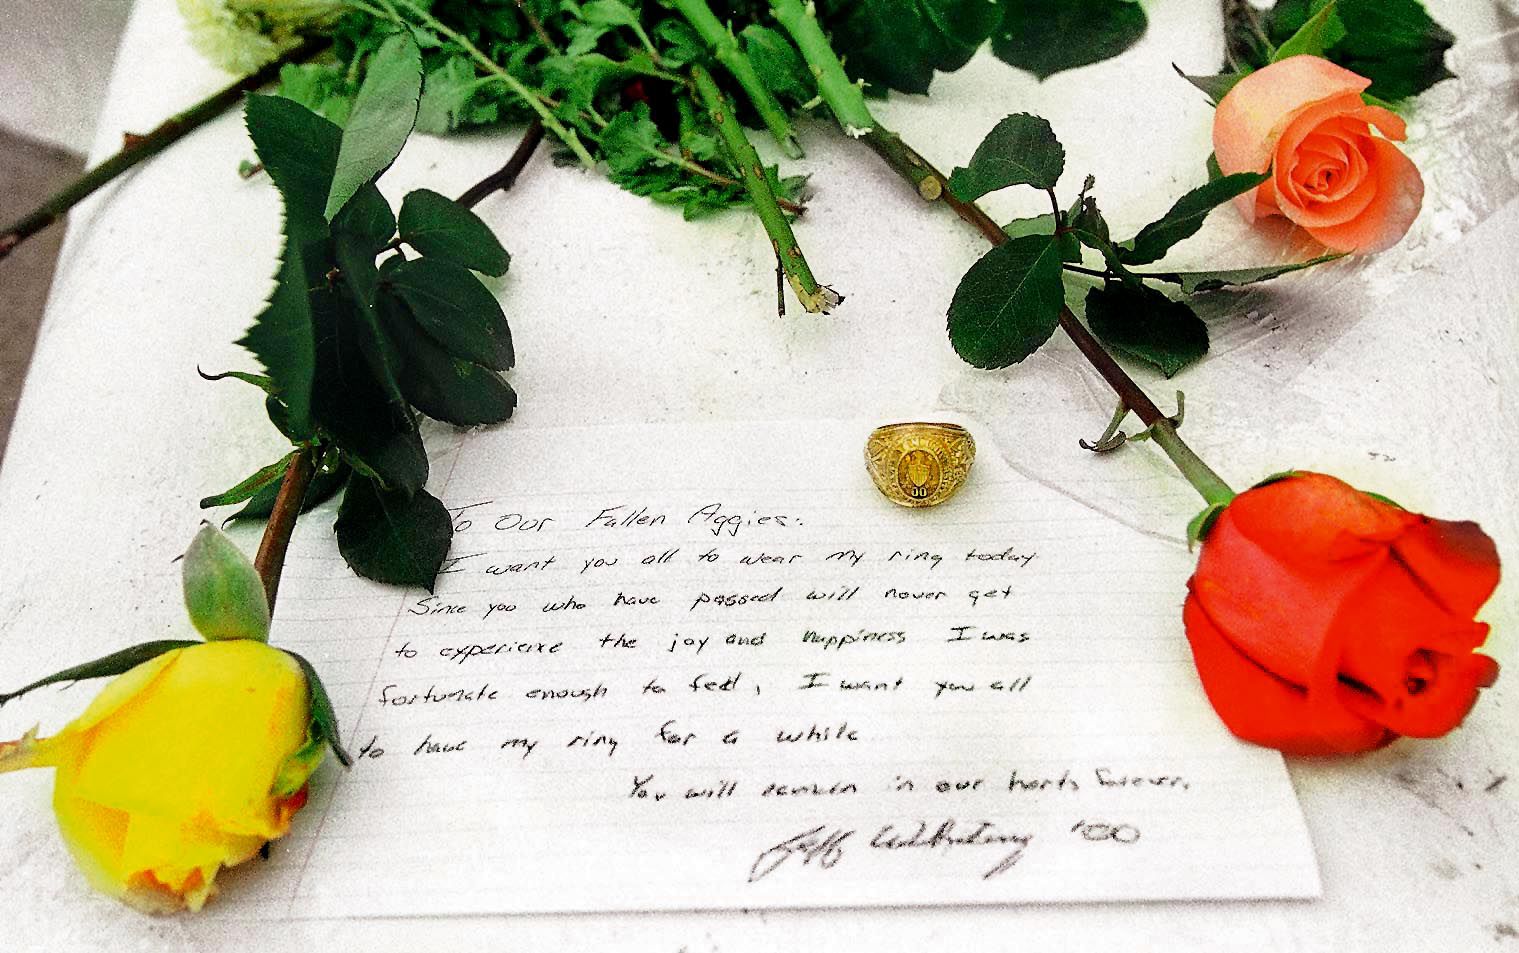 To Our Fallen Aggies:
I want you all to wear my ring today
Since you who have passed will never get
to experience the joy and happiness I was
fortunate enough to feel, I want you all
to have my ring for a while.
You will remain in our hearts forever.
Jeff '00
00